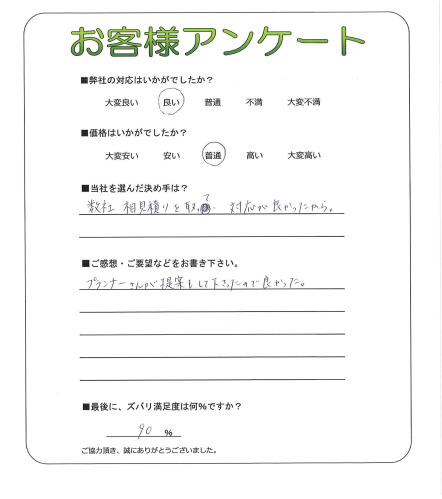 お客様アンケート
■弊社の対応はいかがでしたか？
大変良い 良い 普通 不満 大変不満
■価格はいかがでしたか？
大変安い 安い 普通 高い 大変高い
■当社を選んだ決め手は？
数社 相見積りを取って 対応が良かったから。
■ご感想・ご要望などをお書き下さい。
プランナーさんが提案をして下さったので良かった。
■最後に、ズバリ満足度は何％ですか？
90 ％
ご協力頂き、誠にありがとうございました。